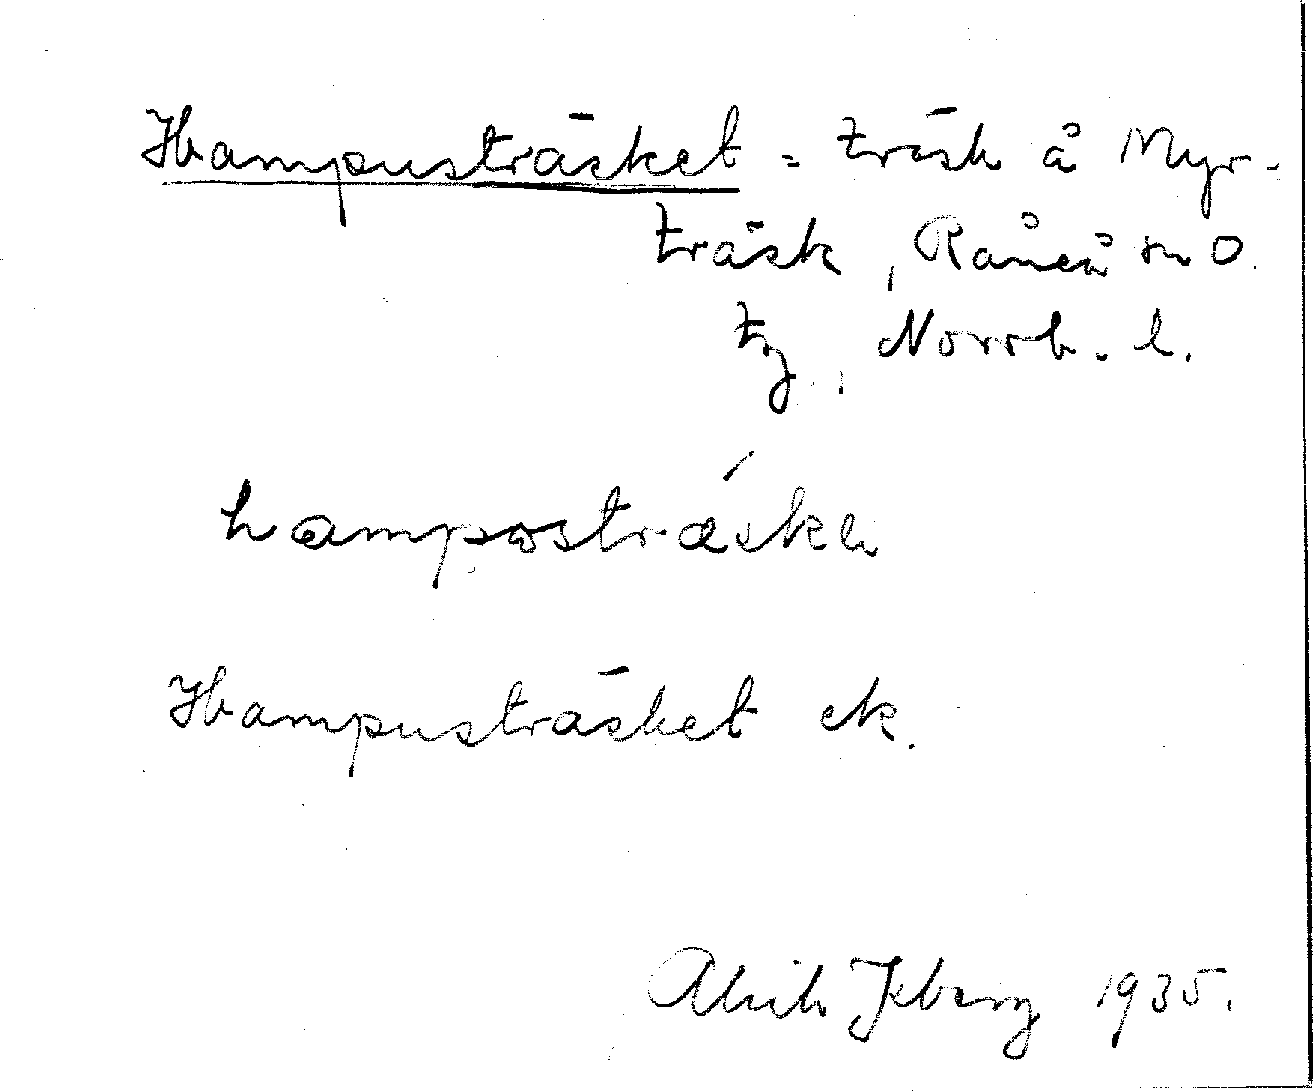 Hampusträsket = träsk å Myr-
träsk, Råneå sn O.
tg, Norrb. l.
hamposträske
Hampusträsket ek.
1935.